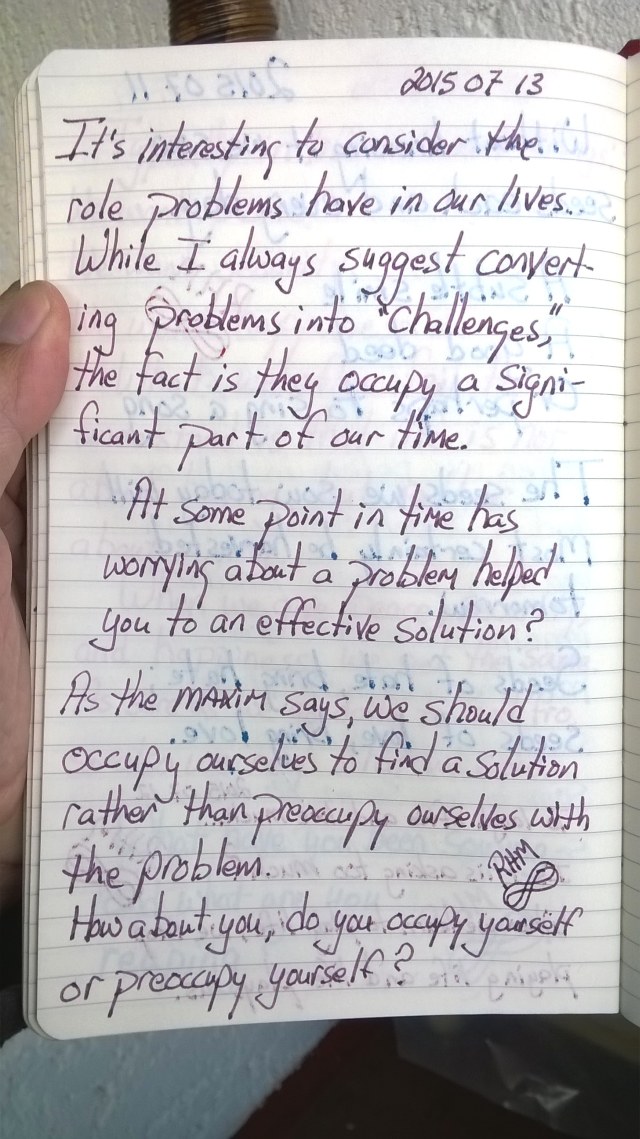 2015 07 13
It's interesting to consider the
role problems have in our lives.
While I always suggest convert-
ing problems into "Challenges,"
the fact is they occupy a signi-
ficant part of our time.
At some point in time has
worrying about a problem helped
you to an effective solution?
As the MAXIM says, we should
occupy ourselves to find a solution
rather than preoccupy ourselves with
the problem.
RHM
How about you, do you occupy yourself
or preoccupy yourself?